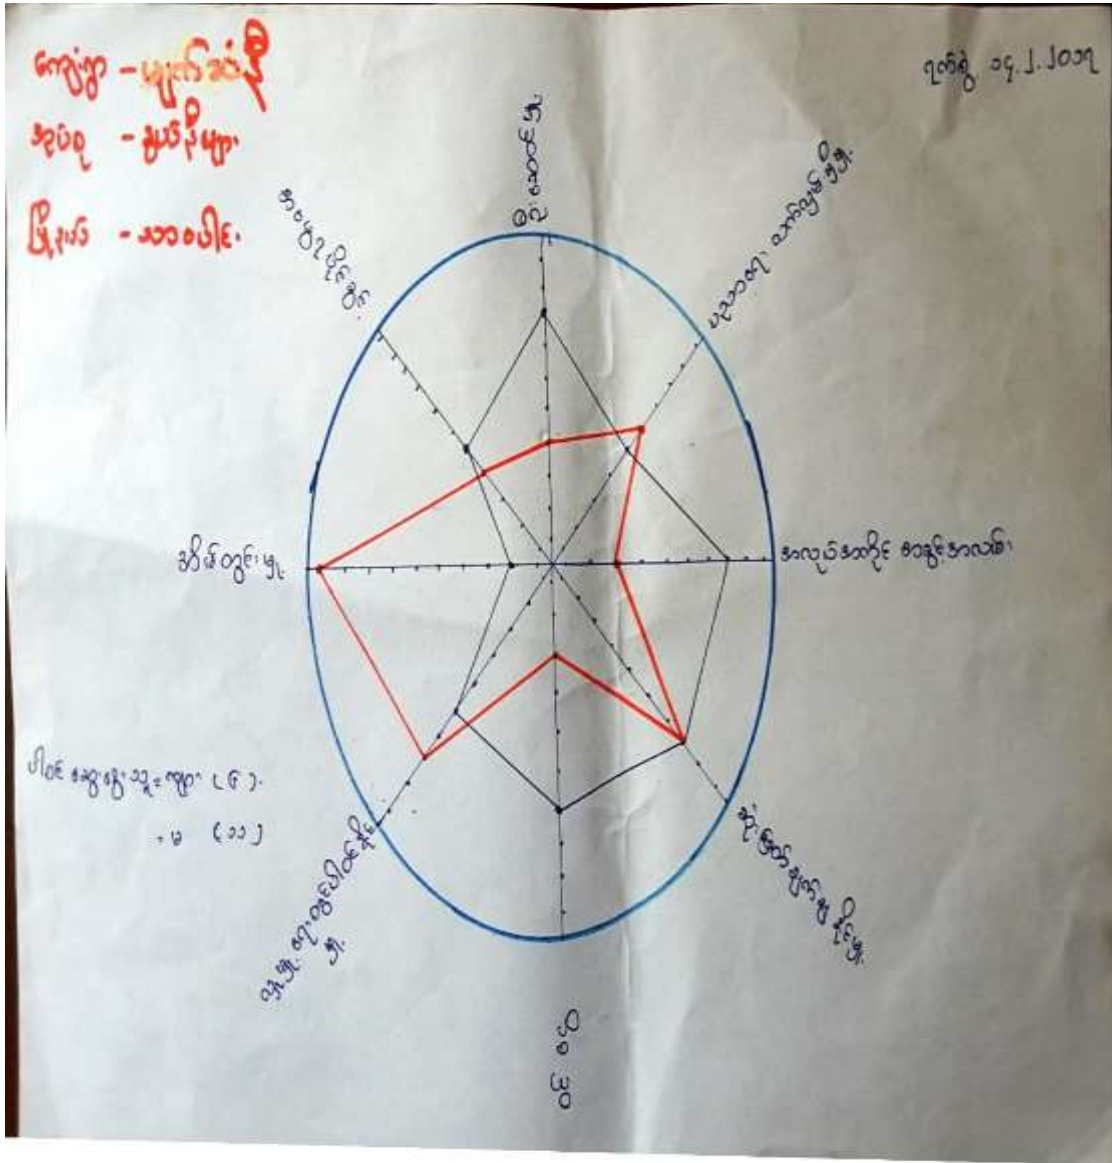 ကျေးရွာ - မျက်ဆံနီ
အုပ်စု - နွယ်နီများ
မြို့နယ် - သာပေါင်း
ရက်စွဲ ၁၄.၂.၂၀၁၇
ဦးဆောင်မှု
ပညာရေး လက်လှမ်းမှီမှု
အလုပ်အကိုင် အခွင့်အလမ်း
ဆုံးဖြတ်ချက်ချနိုင်မှု
ဝင်ငွေ
လူမှုရေးတွင်ပါဝင်နိုင်မှု
အိမ်တွင်းမှု
အမွေရပိုင်ခွင့်
ပါဝင်ဆွေးနွေးသူ = ကျား (၆)
" မ (၁၁)